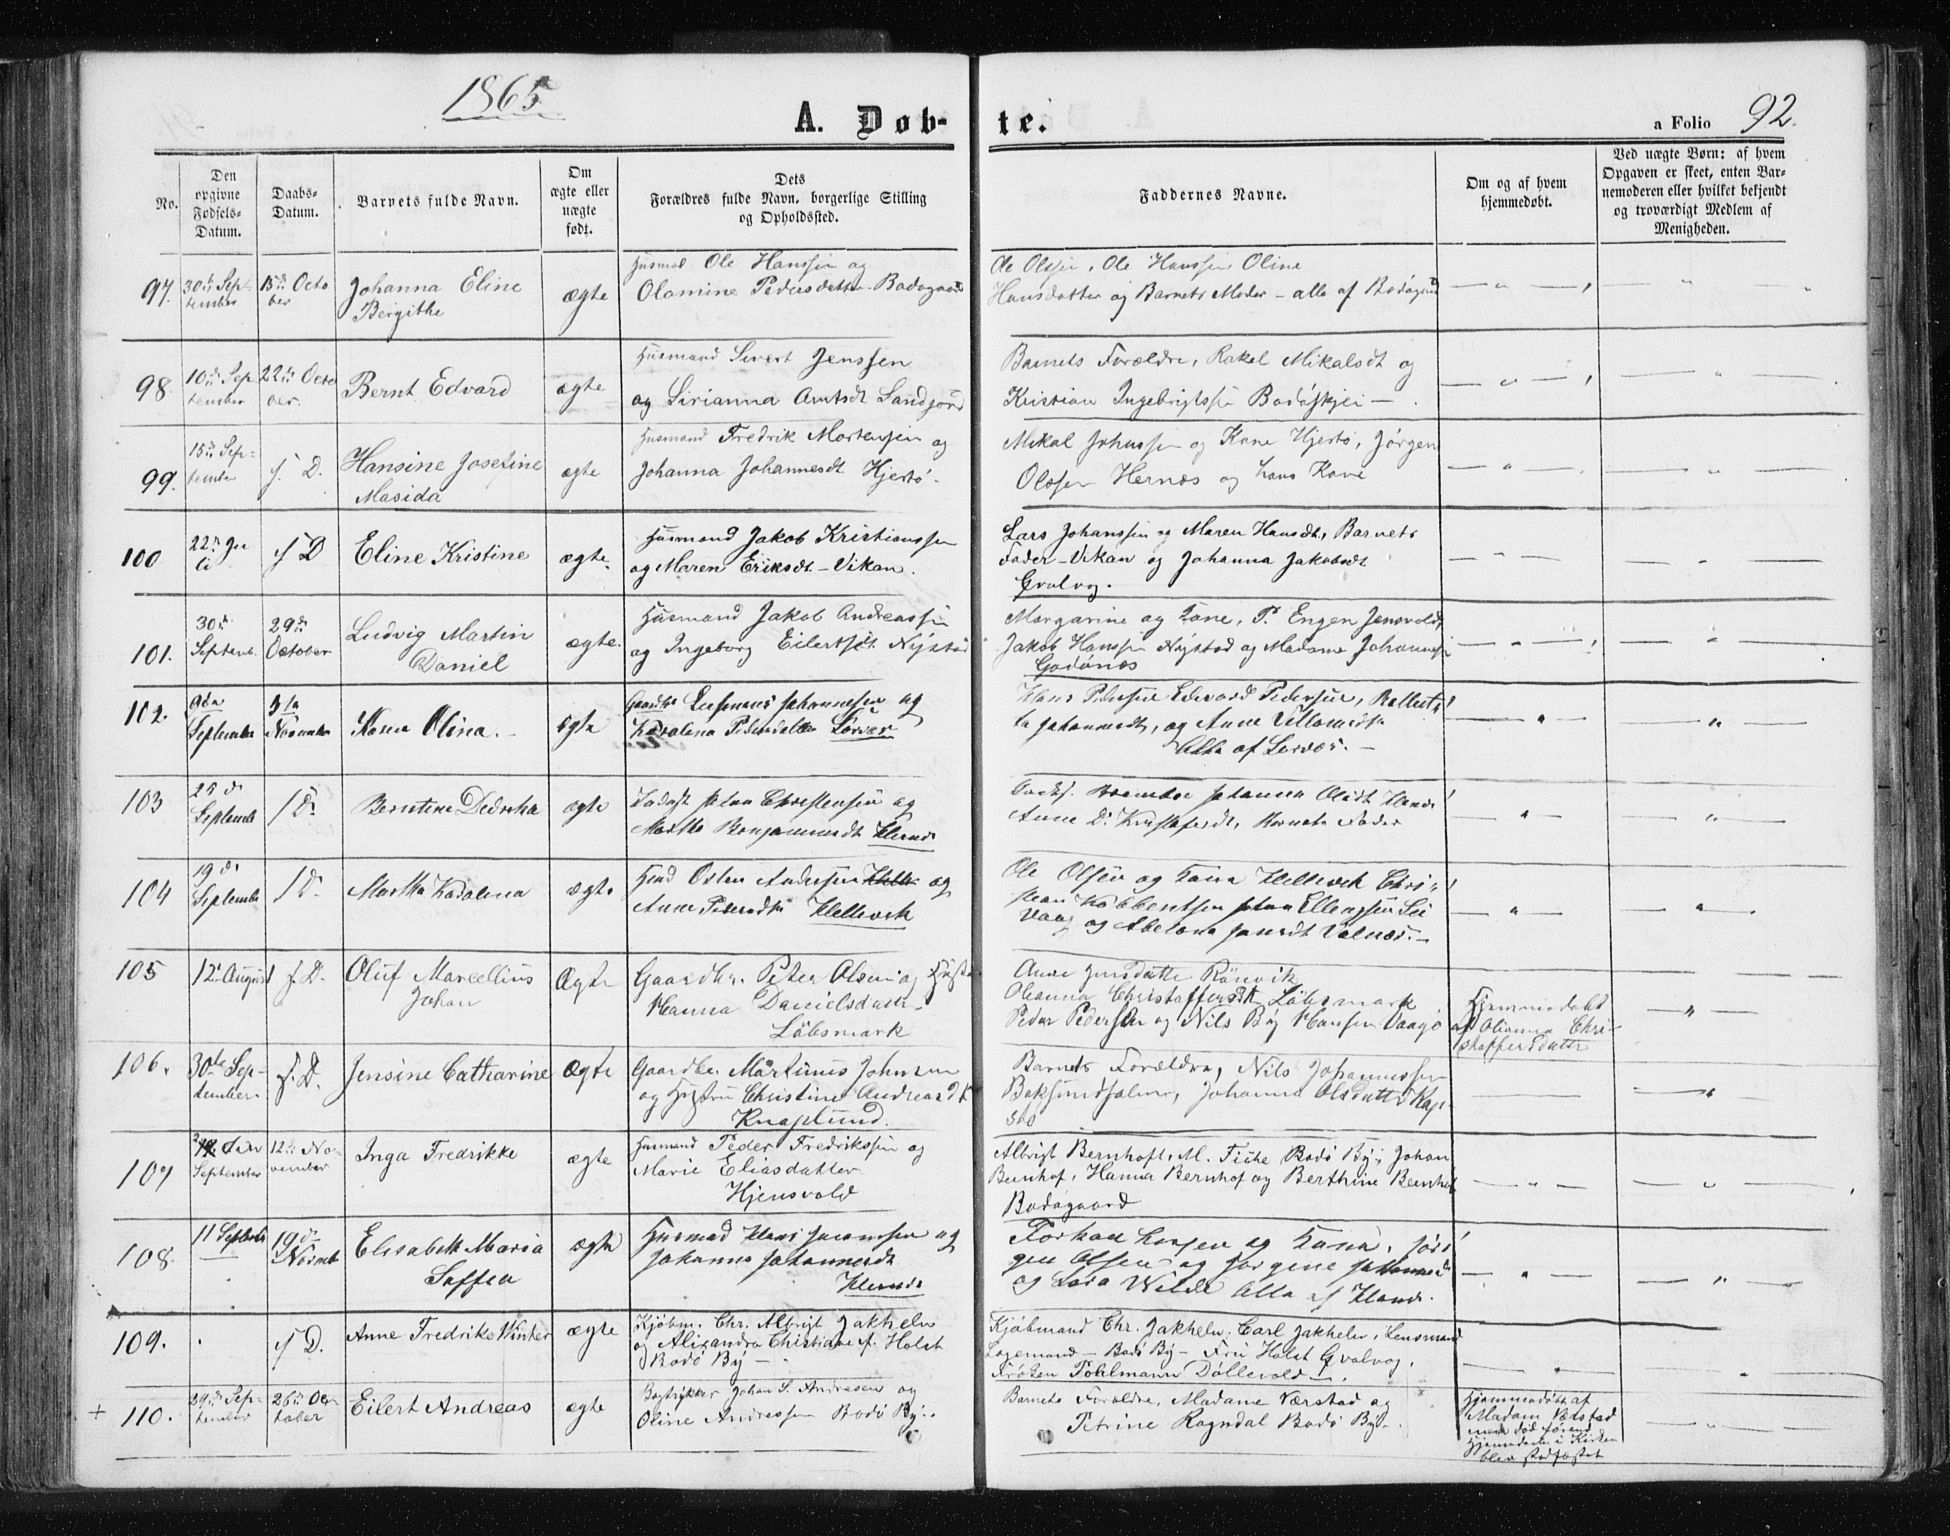 1865
A. Døb-
te.
a Folio 92.
No.
Den
opgivne
Fødsels-
Datum.
Daabs-
Datum.
Barnets fulde Navn.
Om
ægte eller
uægte
født.
Dets
Forældres fulde Navn, borgerlige Stilling
og Opholdssted.
Faddernes Navne.
Om og af hvem
hjemmedøbt.
Ved uægte Børn: af hvem
Opgaven er skeet, enten Bar-
nemoderen eller hvilket bekjendt
og troværdigt Medlem af
Menigheden.
97.
30te Sep-
tember
15de Octo
ber
Johanna Eline
Bergithe
ægte
Husmd Ole Hanssen og
Olamine Pedersdatter Bodøgaard
Ole Olssen, Ole Hanssen Oline
Hansdatter og Barnets Moder - alle af Bodøgaard
98.
10de Sep
tember
22de Octo
ber.
Bernt Edvard
ægte
Husmand Sivert Jenssen
og Sirianna Arntsdt Sandjord
Barnets Forældre, Rakel Mikalsdt og
Kristian Ingebrigtssen Bodøskjei
99.
15de Sep-
tember
s. D.
Hansine Josefine
Masida
ægte
Husmand Fredrik Mortensen og
Johanna Johannesdt Hjertø.
Mikal Johnssen og Kone Hjertø, Jørgen
Olssen Hernæs og hans Kone
100
22de Ju
li
s D
Eline Kristine
ægte.
Husmand Jakob Kristianssen
og Maren Eriksdt - Vikan.
Lars Johanssen og Maren Hansdt, Barnets
Fader - Vikan og Johanna Jakobsdt
Gvalvog.
101.
30de
Septemb.
29de
October
Ludvig Martin
Daniel
ægte.
Husmand Jakob Andreassen
og Ingeborg Eilertsdt Nystad
Margarine og Tone, P. Engen Jensvold,
Jakob Hanssen Nystad og Madame Johannessen
Godønes
102.
9de
September
3te
November
Olina.
ægte
Johannesen og
Pedersdatter Lørvær
Hans Pedersen Edvard Pedersen,
Johannesdt, og Anne
Alle af
103
25de
September
s D.
Berntine Dedrika
ægte
Johan Christensen og
Martha Benjaminsdt Hernæs
Johanna Olsdt
Anne D. Kristofersdt, Barnets Fader
104
19de
September
s D.
Martha Kadolena
ægte
Hmd Osten Andersen og
Anne Pedersdtr Hellevik
Ole Olsen og Kone Hellevik Chri-
stian Johan Ellengsen
Vaag og Abelone Jensdt Valnæs.
105
12te August
s. D.
Oluf Marcellius
Johan
Ægte
Gaardbr. Peter Olsen og Hustru
Hanna Danielsdatter
Løbsmark
Anne Jensdatter Rønvik
Olianna Christoffersdtr Løbsmark
Peder Pedersen og Nils By Hansen Vaagø
Hjemmedøbt
af Olianna Chri-
stoffersdatter
106.
30te Sep-
tember
s. D.
Jensine Catharine
Ægte
Gaardbr. Martinus Johnsen
og Hustru Christine Andreasdtr
Knaplund.
Barnets Forældre, Nils Johannessen
Johanna Olsdatter Kap-
107
September
12te No-
vember
Inga Fredrikke
ægte
Husmand Peder Fredrikssen og
Marie Eliasdatter
Hjensvold
Albrigt Bernhoft, M. Fiche Bodø By, Johan
Bernhof, Hanna Bernhof og Berthine Bernhof
Bodøgaard
108.
11 Septemb
19de
Novemb
Elisabeth Maria
Soffea
ægte
Husmand Hans Joramsen og
Johanna Johannesdt
Hernæs
og Kone, Jør-
gen Olsen og Jørgine Johannesd
og Lora Wilde Alle af
109.
s D.
Anne Fredrike Winter
ægte
Kjøbm. Chr. Albrigt Jakhelln
og Alexandra Christiane f. Holst
Bodø By
Kjøbmand Chr. Jakhelln, Carl Jakhelln, Lensmand
Bodø By - Fru Holst Gvalvog,
Frøken Pohlmann Døllevold
110.
24de Sep-
tember
26de Oc-
tober
Eilert Andreas
ægte
Bogtrykker Johan S. Andresen og
Oline Andresen Bodø By.
Barnets Forældre, Madame Nærstad og
Petrine Rogndal Bodø By.
Hjemmedøbt af
Madam Nærstad
men død førend
Hjemmedaaben i Kirken
blev stadfæstet